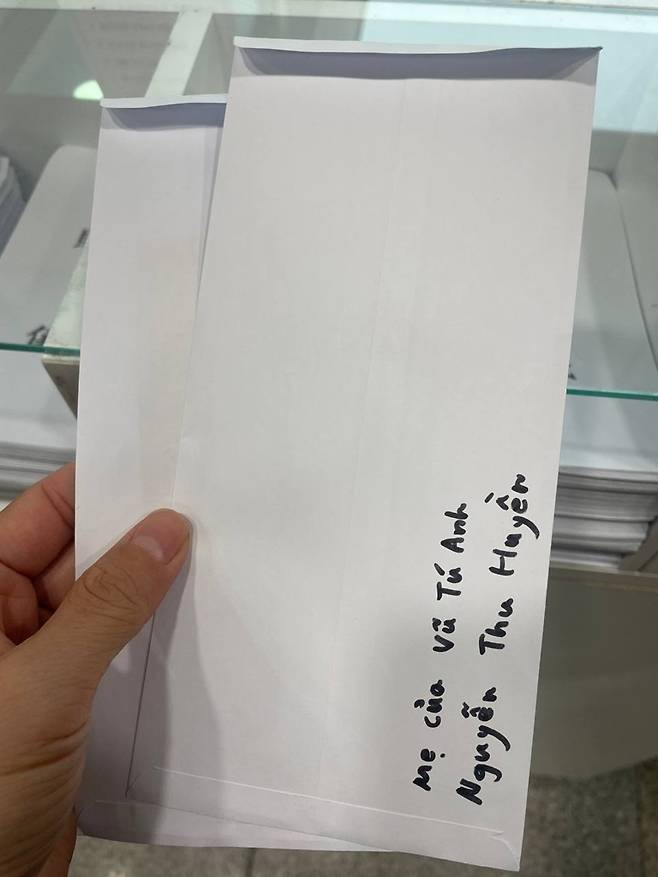 Mẹ của Vũ Tú Anh
Nguyễn Thu Huyền